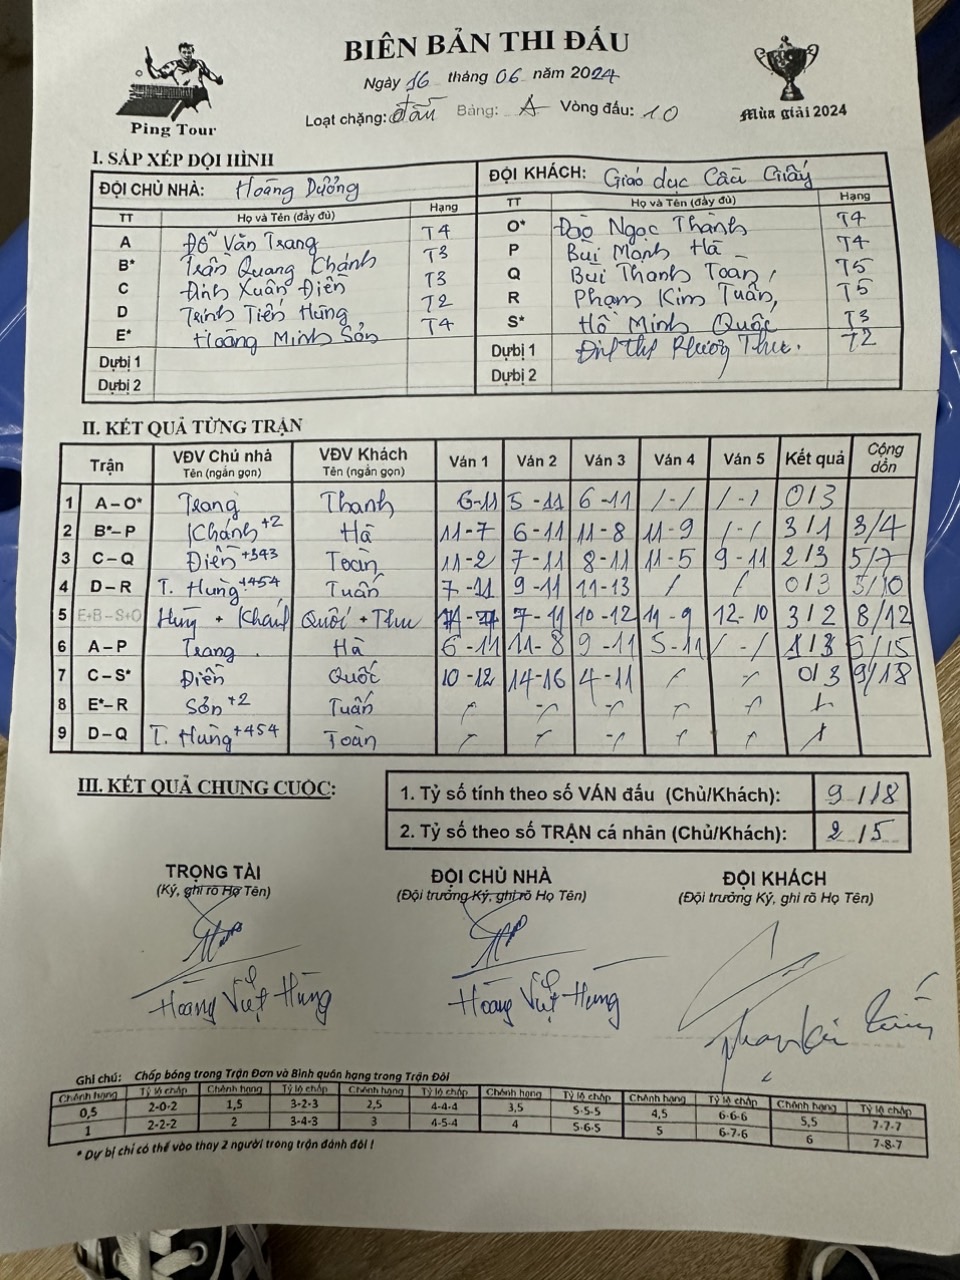 BIÊN BẢN THI ĐẤU
Ngày 16 tháng 06 năm 2024
Loạt chặng: Bảng: A Vòng đấu: 10
Ping Tour
Mùa giải 2024
I. SẮP XẾP ĐỘI HÌNH
ĐỘI CHỦ NHÀ: Hoàng Dưỡng
ĐỘI KHÁCH: Giáo dục Cầu Giấy
TT Họ và Tên (đầy đủ) Hạng
A Đỗ Văn Trang T4
B* Trần Quang Khánh T3
C Đinh Xuân Điển T3
D Trịnh Tiến Hùng T2
E* Hoàng Minh Sơn T4
Dự bị 1
Dự bị 2
TT Họ và Tên (đầy đủ) Hạng
O* Đào Ngọc Thành T4
P Bùi Mạnh Hà T4
Q Bùi Thanh Toàn T5
R Phạm Kim Tuấn T5
S* Hồ Minh Quốc T3
Dự bị 1 Thư T2
Dự bị 2
II. KẾT QUẢ TỪNG TRẬN
Trận VĐV Chủ nhà Tên (ngắn gọn) VĐV Khách Tên (ngắn gọn) Ván 1 Ván 2 Ván 3 Ván 4 Ván 5 Kết quả Cộng dồn
1 A – O* Trang Thanh 6-11 5-11 6-11 /-/ /-/ 0/3
2 B*– P Khánh+2 Hà 11-7 6-11 11-8 11-9 /-/ 3/1 3/4
3 C – Q Điển+343 Toàn 11-2 7-11 8-11 11-5 9-11 2/3 5/7
4 D – R T. Hùng+454 Tuấn 7-11 9-11 11-13 / / 0/3 5/10
5 E+B – S+O Hùng + Khánh Quốc + Thu 7-11 10-12 11-9 12-10 3/2 8/12
6 A – P Trang Hà 6-11 11-8 9-11 5-11 /-/ 1/3 9/15
7 C – S* Điển Quốc 10-12 14-16 4-11 / / 0/3 9/18
8 E*– R Sơn+2 Tuấn
9 D – Q T. Hùng+454 Toàn
III. KẾT QUẢ CHUNG CUỘC:
1. Tỷ số tính theo số VÁN đấu (Chủ/Khách): 9/18
2. Tỷ số theo số TRẬN cá nhân (Chủ/Khách): 2/5
TRỌNG TÀI
(Ký, ghi rõ Họ Tên)
Hoàng Việt Hùng
ĐỘI CHỦ NHÀ
(Đội trưởng Ký, ghi rõ Họ Tên)
Hoàng Việt Hùng
ĐỘI KHÁCH
(Đội trưởng Ký, ghi rõ Họ Tên)
Ghi chú: Chấp bóng trong Trận Đơn và Bình quân hạng trong Trận Đôi
Chênh hạng Tỷ lệ chấp Chênh hạng Tỷ lệ chấp Chênh hạng Tỷ lệ chấp Chênh hạng Tỷ lệ chấp Chênh hạng Tỷ lệ chấp Chênh hạng Tỷ lệ chấp
0,5 2-0-2 1,5 3-2-3 2,5 4-4-4 3,5 5-5-5 4,5 6-6-6 5,5 7-7-7
1 2-2-2 2 3-4-3 3 4-5-4 4 5-6-5 5 6-7-6 6 7-8-7
* Dự bị chỉ có thể vào thay 2 người trong trận đánh đôi !